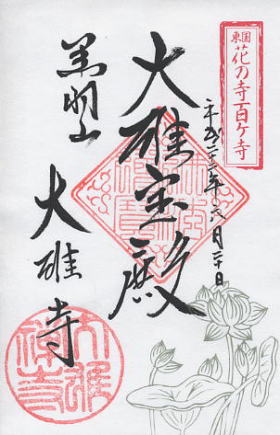 東国
花の寺百ヶ寺
平成二十二年六月二十日
大雄宝殿
黒羽山
大雄寺
大雄禅寺